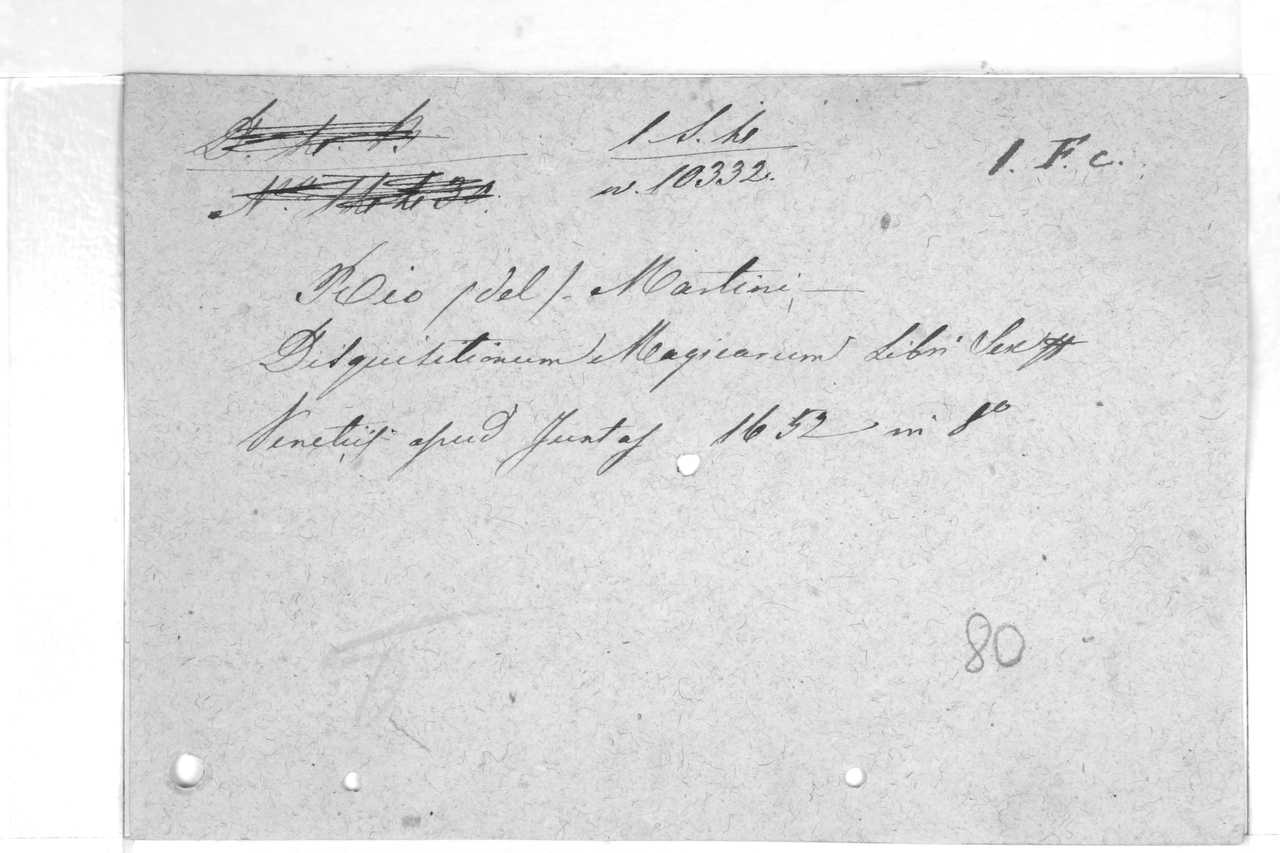 1 S. h
n. 10332.
1. F. c.
Rio /del/. Martini —
Disquisitionum Magicarum Libri Sex
Venetiis apud Juntas 1652 in 8º
80